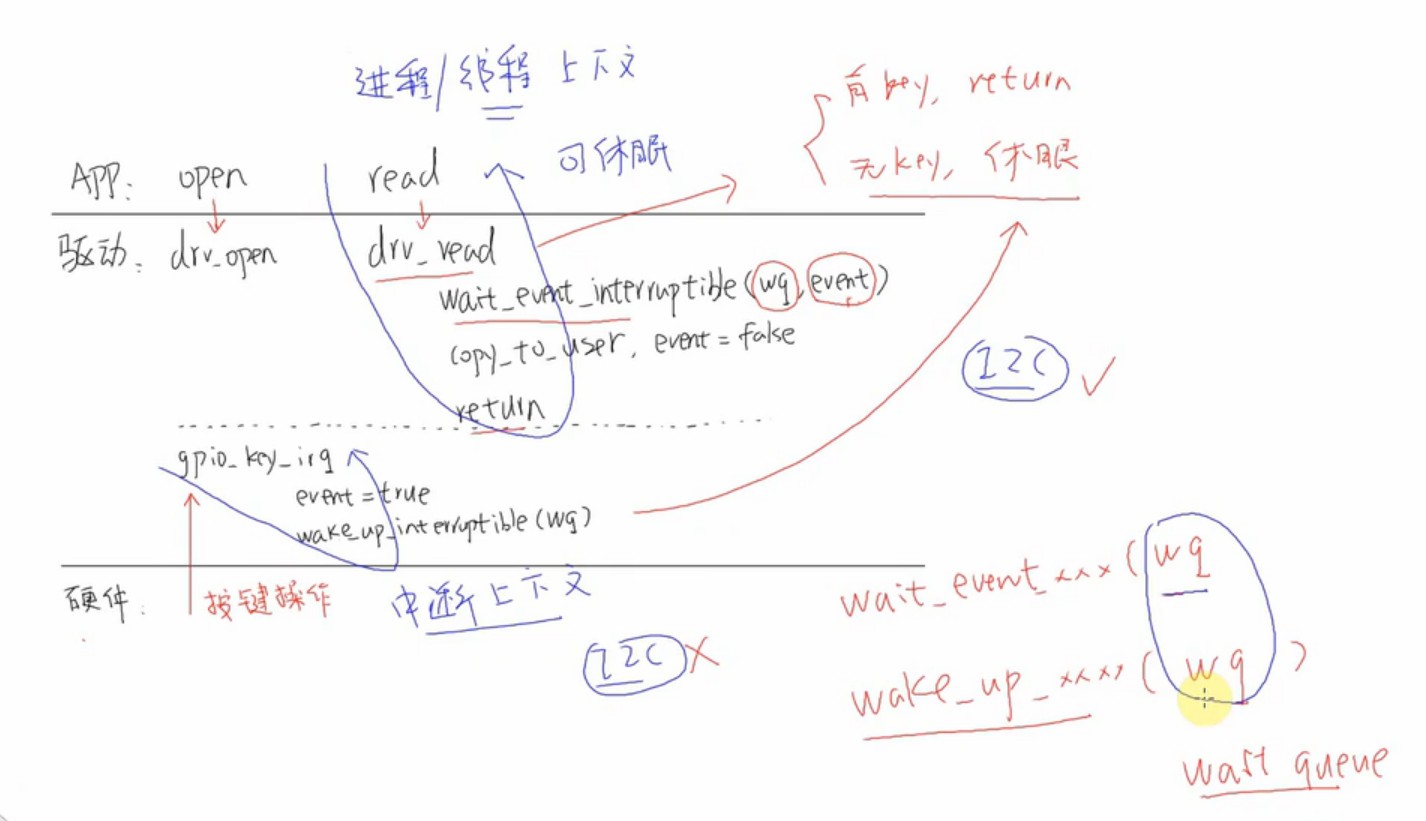 进程/线程 上下文
有 key, return
无 key, 休眠
可休眠
APP: open read
驱动: drv_open drv_read
wait_event_interruptible(wq, event)
copy_to_user, event = false
return
I2C
gpio_key_irq
event = true
wake_up_interruptible(wq)
硬件: 按键操作 中断上下文
I2C
wait_event_xxx(wq
wake_up_xxxx(wq)
wait queue